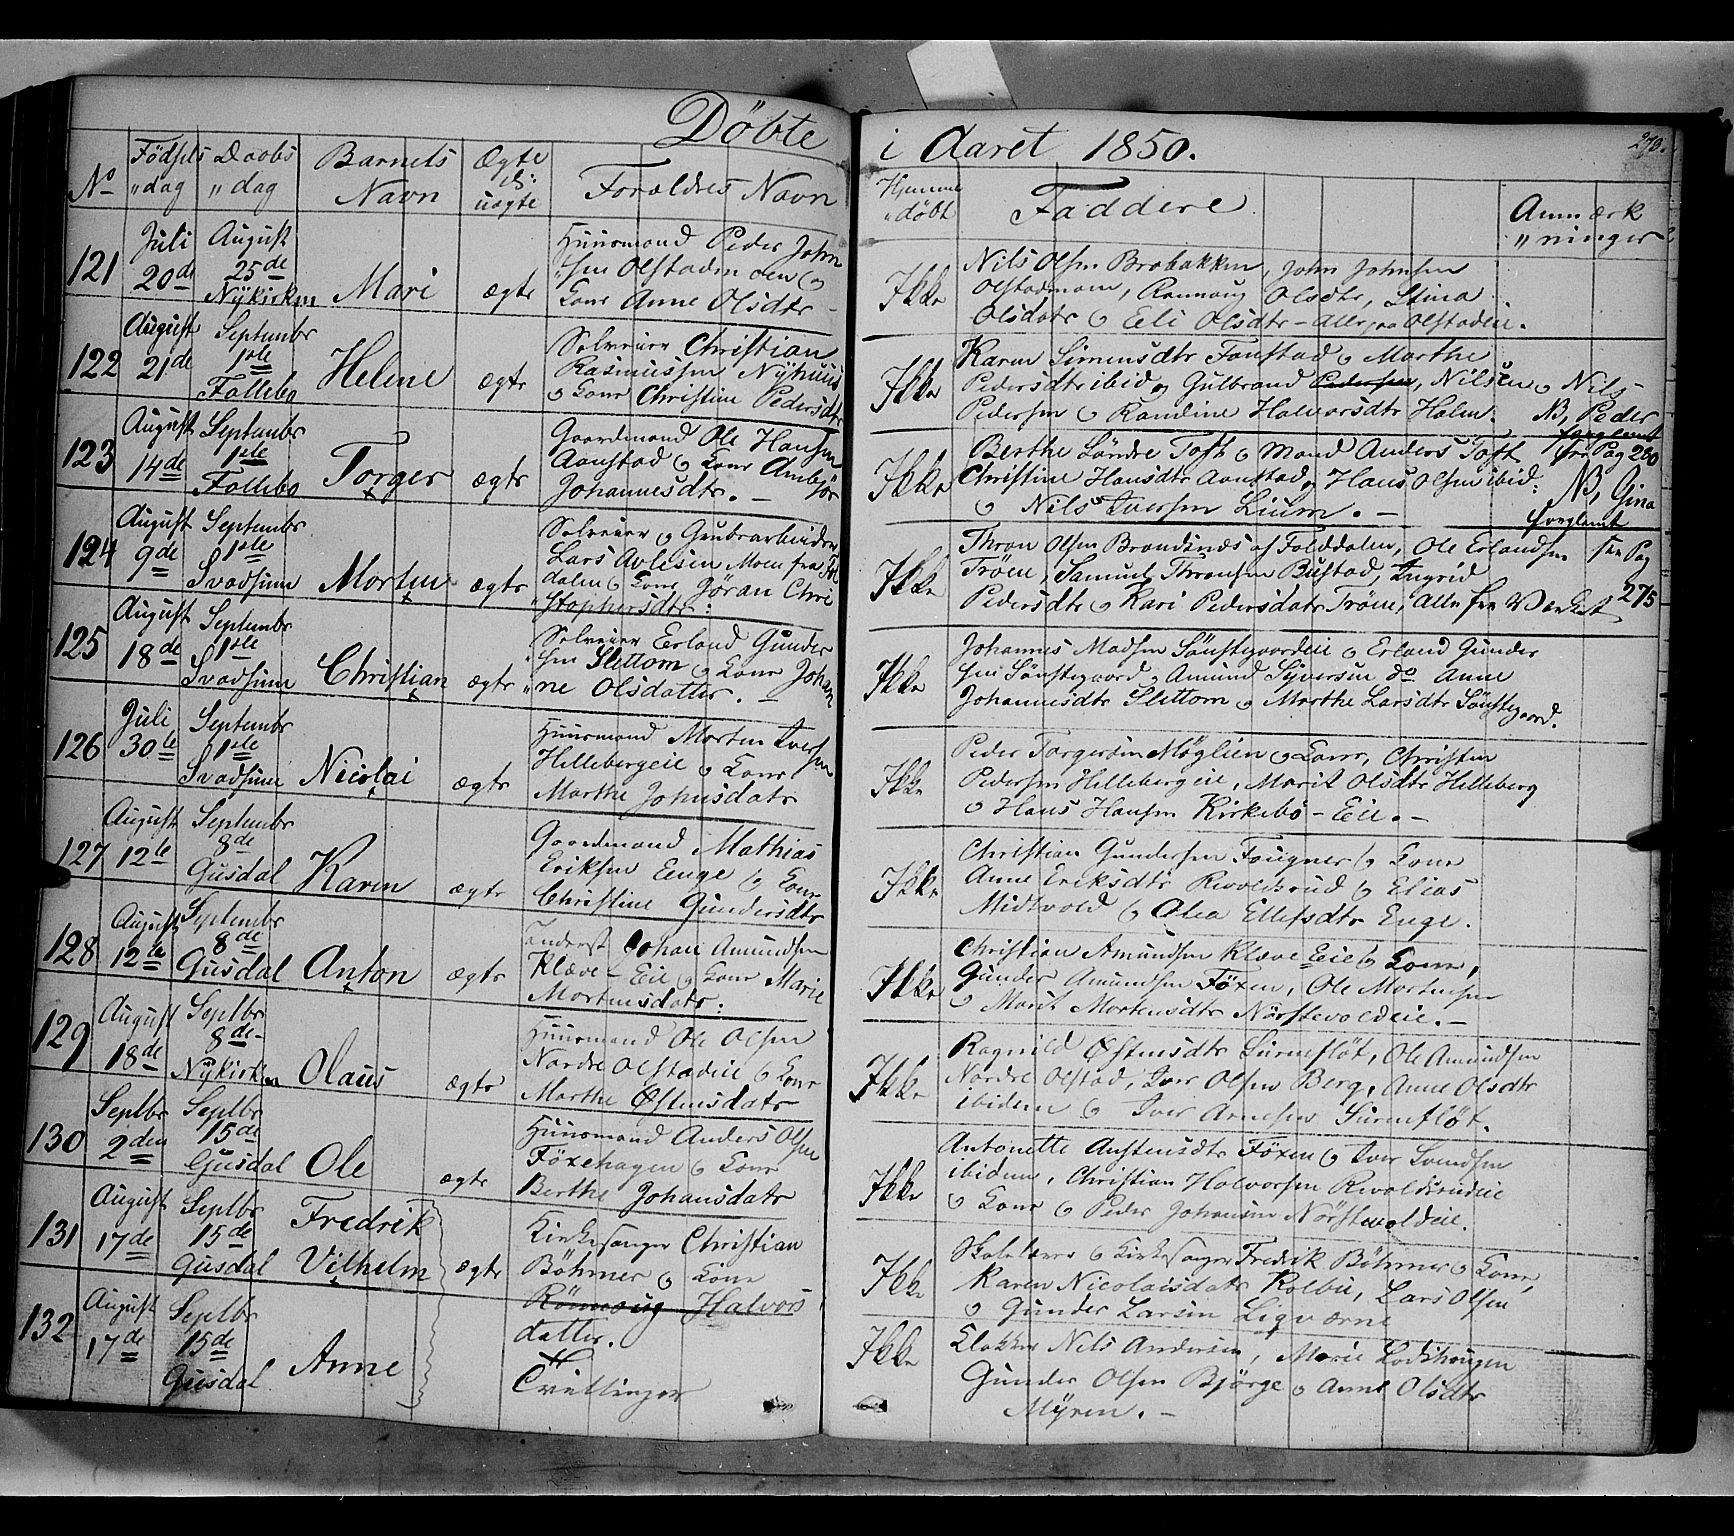 Döbte i Aaret 1850.
270.
No
Födsels
"dag
Daabs
"dag
Barnets
Navn
Ægte
el:
uægte
Forældres Navn
Hjemme
"döbt
Faddere
Anmærk
"ninger
121
Juli
20de
August
25de
Nÿkirken
Mari
ægte
Huusmand Peder John
"sen Olstadeneien &
Kone Anne Olsdtr
Ikke
Nils Olsen Brobakken, John Johnsen
Olstadmoen, Rannoug Olsdtr, Stina
Olsdatr & Eli Olsdtr - alle paa Olstadeie.
122
August
21de
Septembr
1ste
Follebo
Helene
ægte
Selveier Christian
Rasmussen Nÿhuus
& Kone Christine Pedersdtr
Ikke
Karen Simensdtr Fonstad & Marthe
Pedersdtr ibid & Gulbrand Pedersen, Nilsen & Nils
Pedersen & Randine Halvorsdtr Holm.
NB, Peder
forglemt
før Pag 280
123
August
14de
Septembr
1ste
Follebo
Torger
ægte
Gaardmand Ole Hansen
Aanstad & Kone Ambjör
Johannesdtr. -
Ikke
Berthe Söndre Toft & Mand Anders Toft
Christine Hansdtr Aanstad, Hans Olsen ibid:
& Nils Iversen Lium. -
NB, Gina
forglemt
see Pag
275
124
August
9de
Septembr
1ste
Svadsum
Morten
ægte
Selveier & Grubearbeider
Lars Avlesen Moen fra Fol
dalen & Kone Göran Chri
"stophersdtr:
Ikke
Thron Olsen Brandsnæs af Folddalen, Ole Erlandsen
Tröen, Samuel Thronsen Bustad, Ingrid
Pedersdtr & Kari Pedersdatr Tröen, alle fra Værket
125
August
18de
Septembr
1ste
Svadsum
Christian
ægte
Selveier Erland Gunder
"sen Slettom & Kone Johan
"ne Olsdatter. -
Ikke
Johannes Madsen Sönstegaardeie & Erland Gunder
sen Sönstegaard, Amund Syversen do Anne
Johannesdtr Slettom & Marthe Larsdtr Sönstegaard.
126
Juli
30te
Septembr
1ste
Svadsum
Nicolai
ægte
Huusmand Morten Iversen
Hellebergeie & Kone
Marthe Johnsdatr
Ikke
Peder Torgersen Möglien & Kone, Christen
Pedersen Hellebergeie, Marit Olsdtr Helleberg
& Hans Hansen Kirkebö - Eie. -
127
August
12te
Septembr
8de
Gusdal
Karen
ægte
Gaardmand Mathias
Eriksen Enge & Kone
Christine Gundersdtr
Ikke
Christian Gundersen Fougner & Kone
Anne Eriksdtr Revoldsrud & Elias
Midtvold & Olea Ellefsdtr Enge.
128
August
12te
Septembr
8de
Gusdal
Anton
ægte
Inderst Johan Amundsen
Klæve - Eie & Kone Marie
Mortensdatr:
Ikke
Christian Amundsen Klæve Eie & Kone,
Gunder Amundsen Föxen, Ole Mortensen
& Marit Mortensdtr Nörstevoldeie. -
129
August
18de
Septbr
8de
Nÿkirken
Olaus
ægte
Huusmand Ole Olsen
Nordre Olstadeie & Kone
Marthe Østensdatr
Ikke
Ragnild Østensdtr Surneflöt, Ole Amundsen
Nordre Olstad, Iver Olsen Berg, Anne Olsdtr
ibidem & Iver Arnesen Surneflöt.
130
Septbr
2den
Septbr
15de
Gusdal
Ole
ægte
Huusmand Anders Olsen
Föxehagen & Kone
Berthe Johansdatr
Ikke
Antonette Austensdtr Föxen & Iver Svendsen
ibidem, Christian Halvorsen Revoldsrudeie
& Kone & Peder Johansen Nörstevoldeie.
131
August
17de
Septbr
15de
Gusdal
Fredrik
Vilhelm
ægte
Kirkesanger Christian
Böhmer & Kone
Rönnoug Halvors
datter.
Ikke
Skolelærer & Kirkesanger Fredrik Böhmer & Kone,
Karen Nicolaisdatr Kolbu, Lars Olsen
& Gunder Larsen Liqværne
132
August
17de
Septbr
15de
Gusdal
Anne
Tvillinger
Ikke
Klokker Nils Andersen, Marie Lodshougen
Gunder Olsen Bjørge & Anne Olsdtr
Mÿren. -